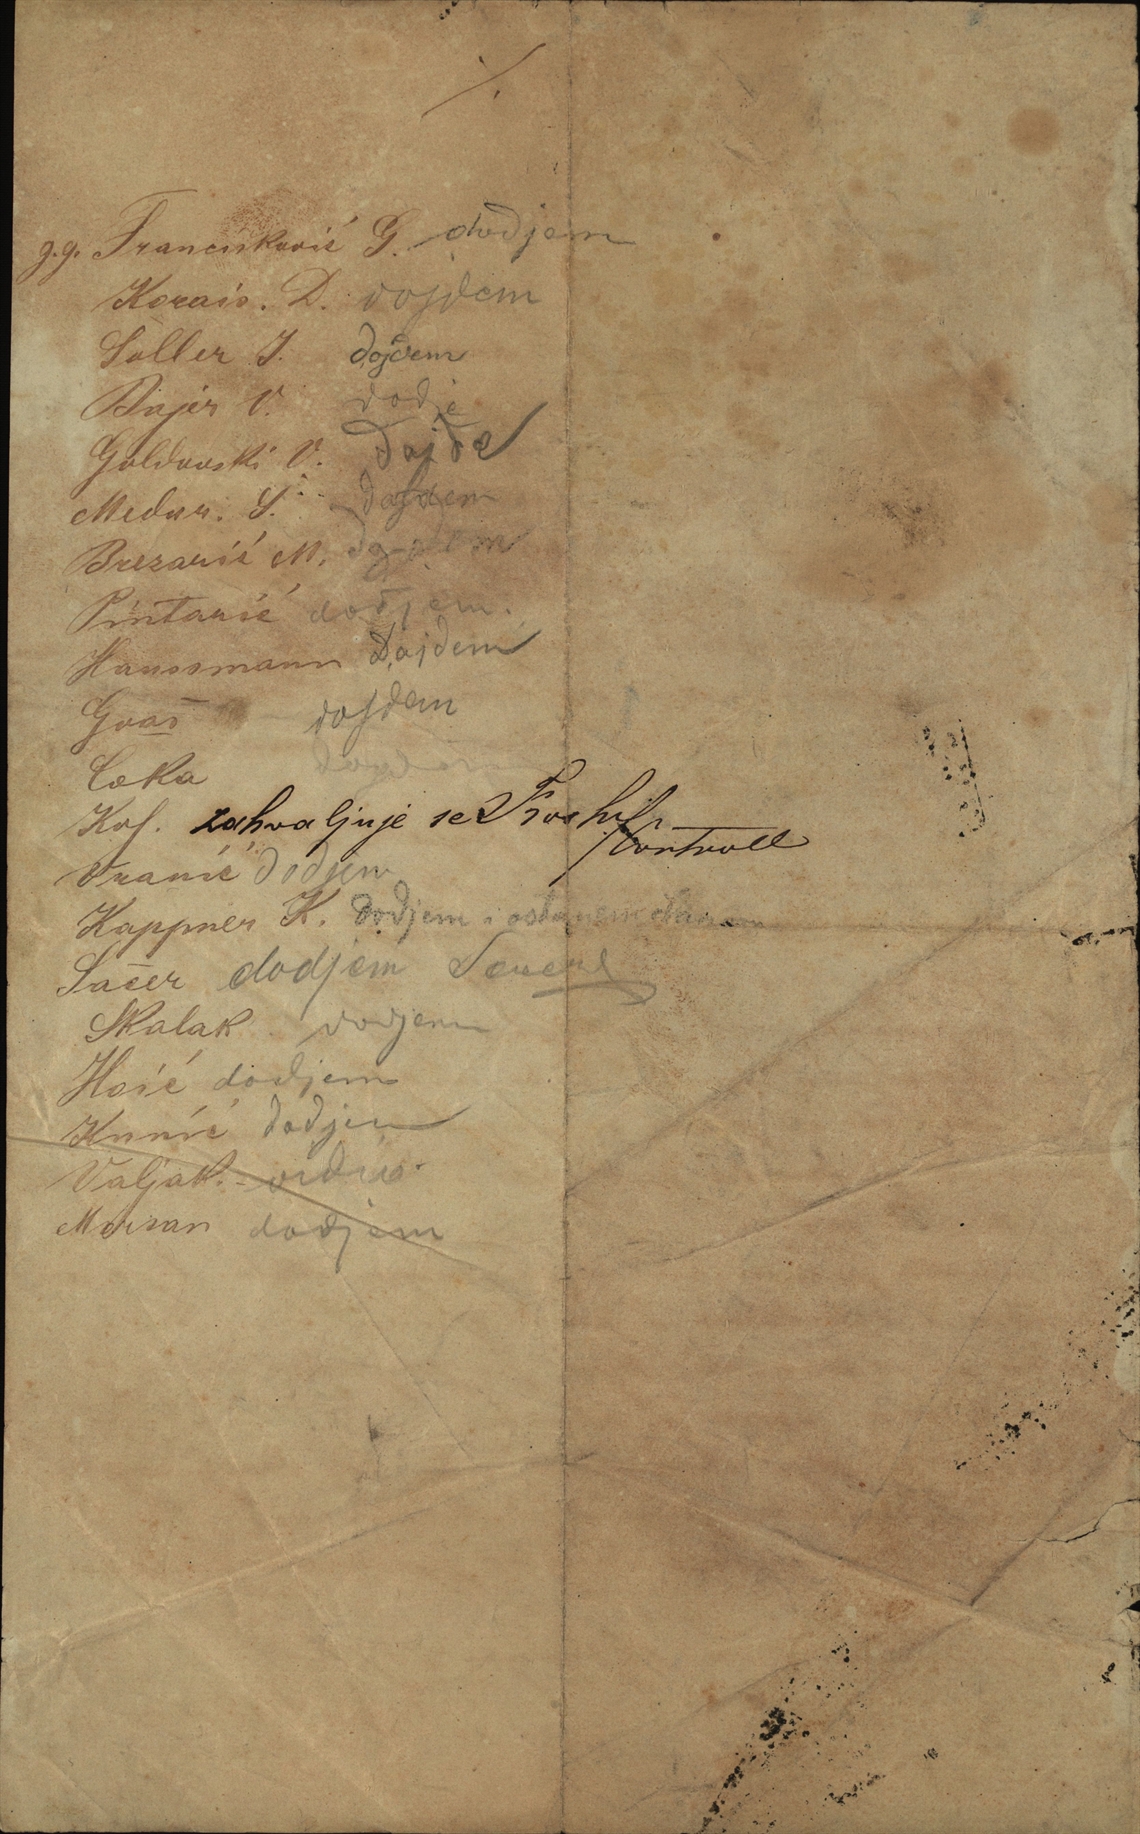 g.g. Francisković G. dodjem
Korais. D. dojdem
Soller J. dojdem
Bajer V. dodje
Goldovski V. Dojde
Medur. S. dojdem
Brezarić M.
Pintarić dodjem.
Haussmann Dojdem
Gvaš dojdem
Coka
Kof. zahvaljuje se
Controll
Vranić dodjem
Kappner K. dodjem i ostanem
Sačer dodjem
Skalak dodjem
Ilsić dodjem
Kunić dodjem
Valjak. vidio
Morsan dodjem